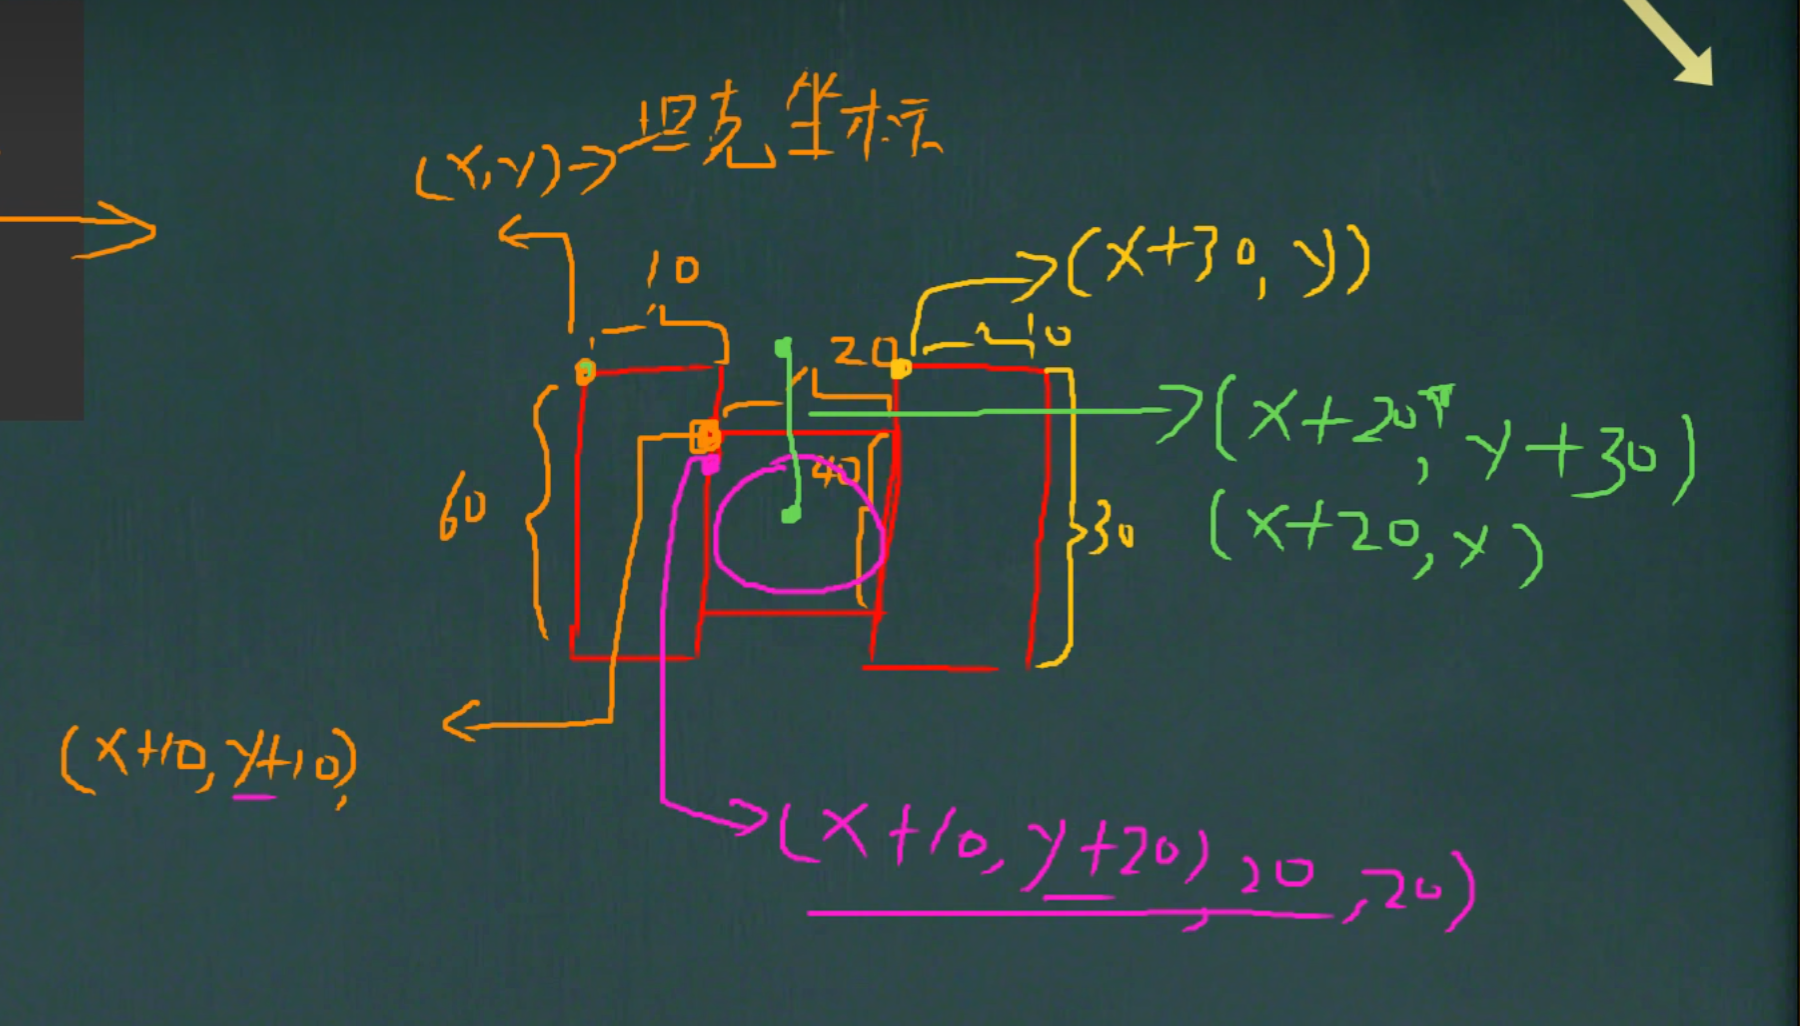 (x,y)→坦克坐标
10
(x+30,y)
20
10
60
40
30
(x+20,y+30)
(x+20,y)
(x+10,y+10)
(x+10,y+20),20,20)